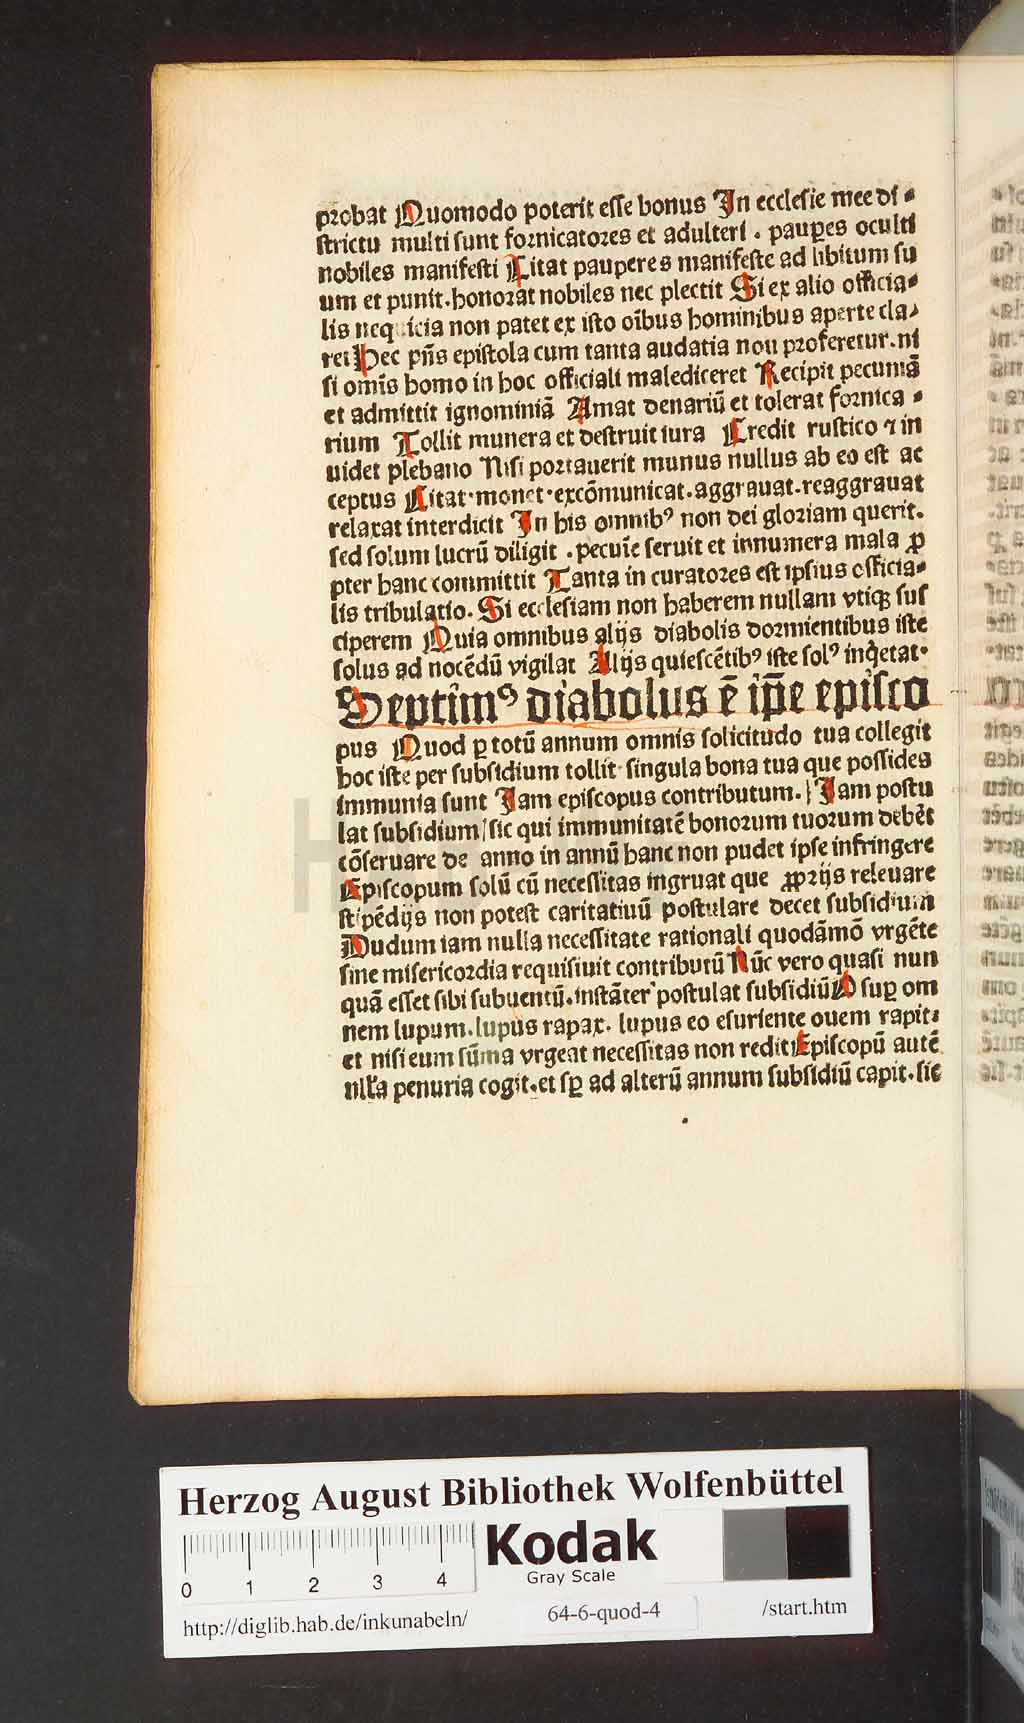 probat Quomodo poterit esse bonus In ecclesie mee di⸗
strictu multi sunt fornicatores et adulteri . pauꝑes oculti
nobiles manifesti Citat pauperes manifeste ad libitum su
um et punit. honorat nobiles nec plectit Si ex alio officia⸗
lis nequicia non patet ex isto oĩbus hominibus aperte cla⸗
ret Hec pñs epistola cum tanta audatia non proferetur. ni
si omĩs homo in hoc officiali malediceret Recipit pecuniã
et admittit ignominiã Amat denariũ et tolerat fornica ⸗
rium Tollit munera et destruit iura Credit rustico ⁊ in
uidet plebano Nisi portauerit munus nullus ab eo est ac
ceptus Citat·monet·excõmunicat.aggrauat.reaggrauat
relaxat interdicit In his omnibꝰ non dei gloriam querit.
sed solum lucrũ diligit . pecuĩe seruit et innumera mala ꝓ
pter hanc committit Tanta in curatores est ipsius officia⸗
lis tribulatio. Si ecclesiam non haberem nullam vtiqꝫ sus
ciperem Quia omnibus alijs diabolis dormientibus iste
solus ad nocẽdũ vigilat Alijs quiescẽtibꝰ iste solꝰ inq̃etat·
Septimꝰ diabolus ẽ ip̃e episco
pus Quod ꝑ totũ annum omnis solicitudo tua collegit
hoc iste per subsidium tollit· singula bona tua que possides
immunia sunt Iam episcopus contributum. | Iam postu
lat subsidium | sic qui immunitatẽ bonorum tuorum debẽt
cõseruare de anno in annũ hanc non pudet ipse infringere
Episcopum solũ cũ necessitas ingruat que ꝓprijs releuare
stipẽdijs non potest caritatiuũ postulare decet subsidium
Dudum iam nulla necessitate rationali quodãmõ vrgẽte
sine misericordia requisiuit contributũ Nũc vero quasi nun
quã esset sibi subuentũ. instãter postulat subsidiũ O suꝑ om
nem lupum. lupus rapax. lupus eo esuriente ouem rapit:
et nisi eum sũma vrgeat necessitas non redit Episcopũ autẽ
nulla penuria cogit. et sꝑ ad alterũ annum subsidiũ capit. sic
Herzog August Bibliothek Wolfenbüttel
Kodak
Gray Scale
0 1 2 3 4
http://diglib.hab.de/inkunabeln/ 64-6-quod-4 /start.htm